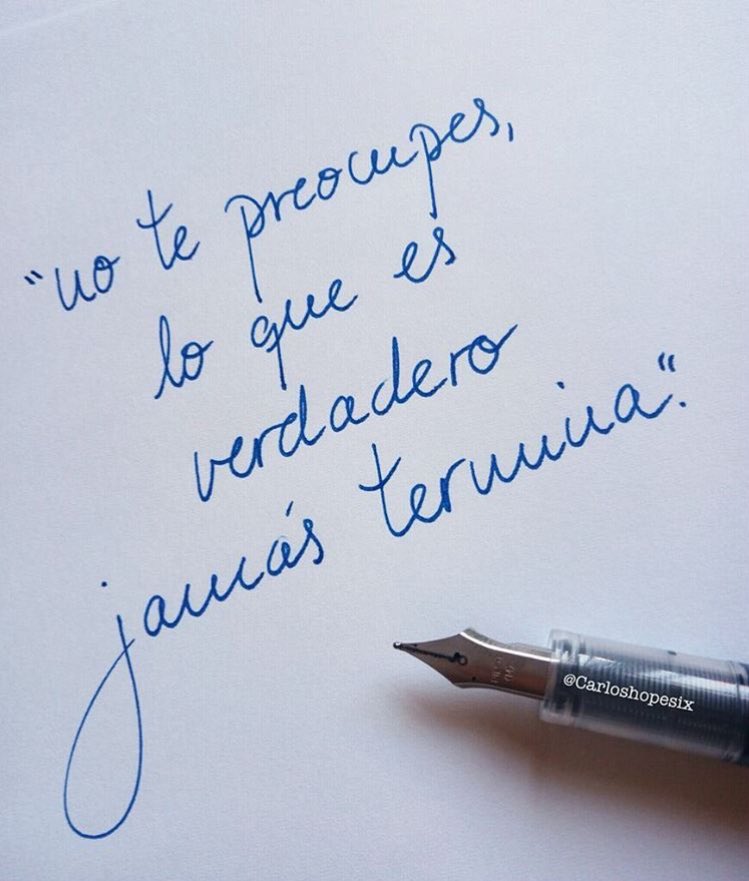 "no te preocupes,
lo que es
verdadero
jamás termina".
@Carloshopesix